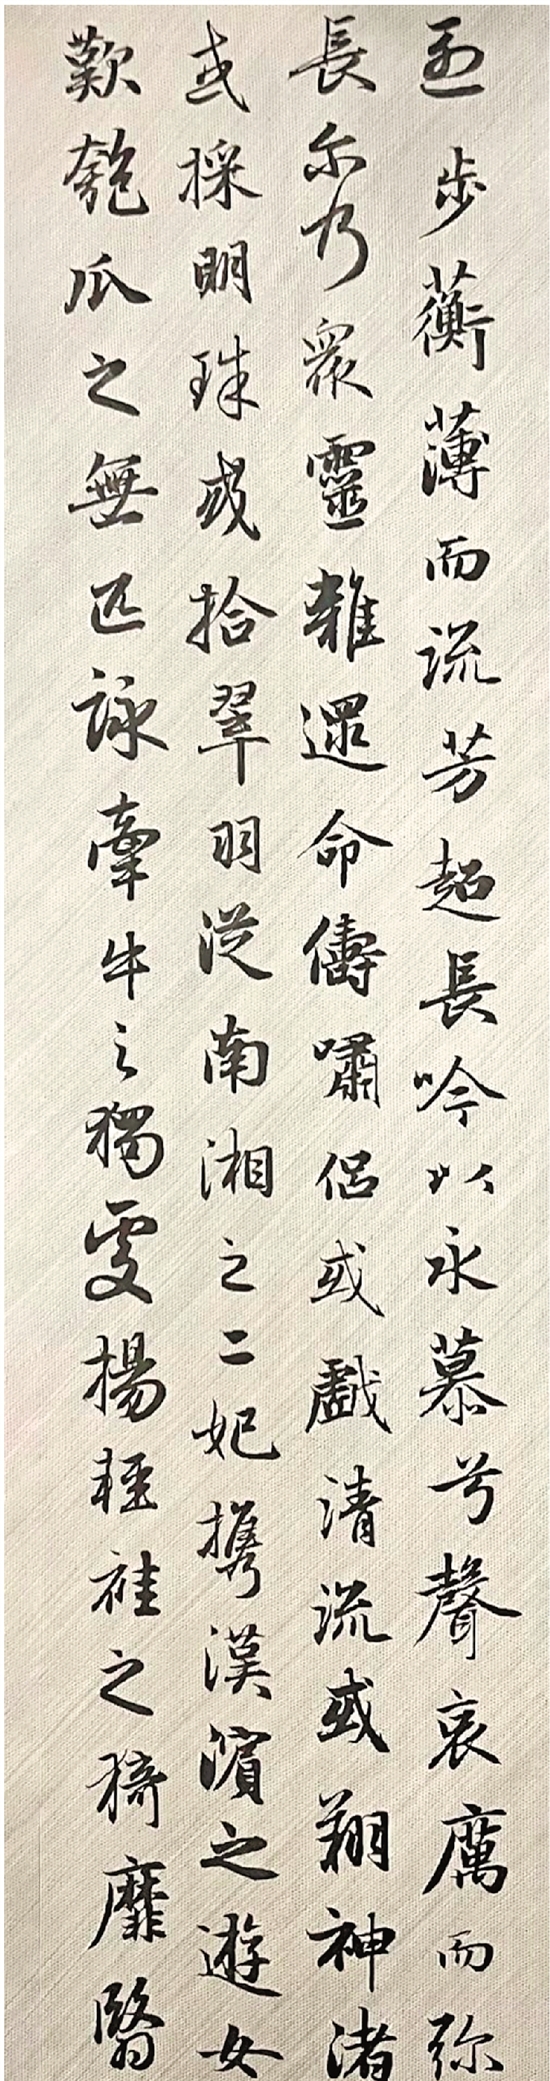 郁步蘅薄而流芳超長吟以永慕兮聲哀厲而弥
長尓乃衆靈雜遝命儔嘯侶或戲清流或翔神渚
或採明珠或拾翠羽從南湘之二妃攜漢濱之遊女
歎匏瓜之無匹詠牽牛之獨處揚輕袿之猗靡翳